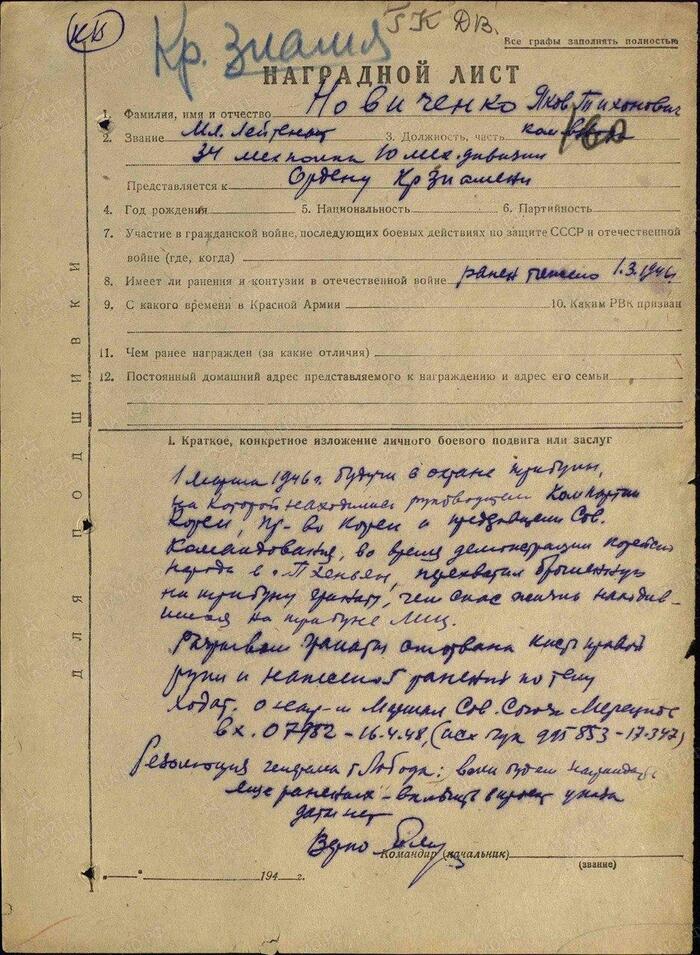 КВ
Кр. Знамя
ГК ДВ.
Все графы заполнять полностью
НАГРАДНОЙ ЛИСТ
1. Фамилия, имя и отчество Новиченко Яков Тихонович
2. Звание Мл. Лейтенант 3. Должность, часть ком взвода
34 мехполка 10 мех. дивизии
Представляется к Ордену Кр Знамени
4. Год рождения 5. Национальность 6. Партийность
7. Участие в гражданской войне, последующих боевых действиях по защите СССР и отечественной
войне (где, когда)
8. Имеет ли ранения и контузии в отечественной войне ранен тяжело 1.3.1946г.
9. С какого времени в Красной Армии 10. Каким РВК призван
11. Чем ранее награжден (за какие отличия)
12. Постоянный домашний адрес представляемого к награждению и адрес его семьи
ДЛЯ ПОДШИВКИ
I. Краткое, конкретное изложение личного боевого подвига или заслуг
1 марта 1946 г. будучи в охране трибуны,
на которой находились руководители Компартии
Кореи, пр-во Кореи и представители Сов.
Командования, во время демонстрации корейского
народа в г. Пхеньян, перехватил брошенную
на трибуну гранату, чем спас жизнь находив-
шихся на трибуне лиц.
Разрывом гранаты оторвана кисть правой
руки и нанесены ранения по телу
Ходат. о наг-и Маршал Сов. Союза Мерецков
вх. 07982-16.4.48, (исх гук 995853-17.347)
Резолюция генерала т Лобода: если будем награждать
еще раненых - включить в проект указа
даты нет
Верно
Командир (начальник)
(звание)
194 г.